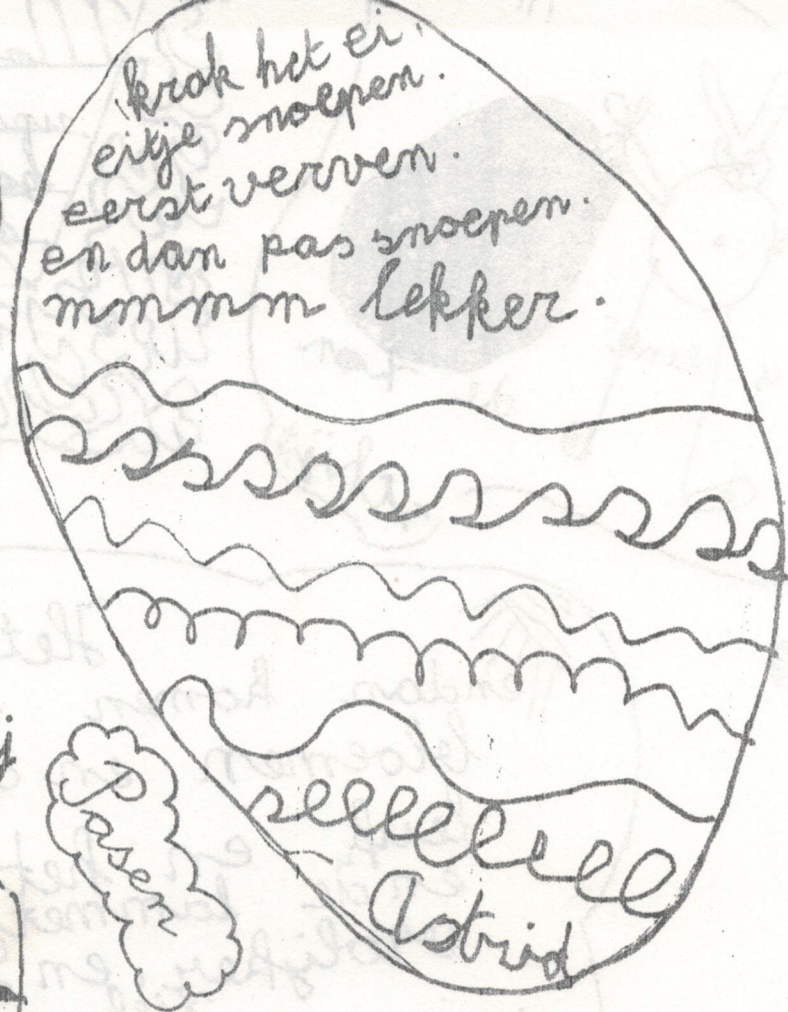 krak het ei.
eitje snoepen.
eerst verven.
en dan pas snoepen.
mmmm lekker.
Pasen
Astrid